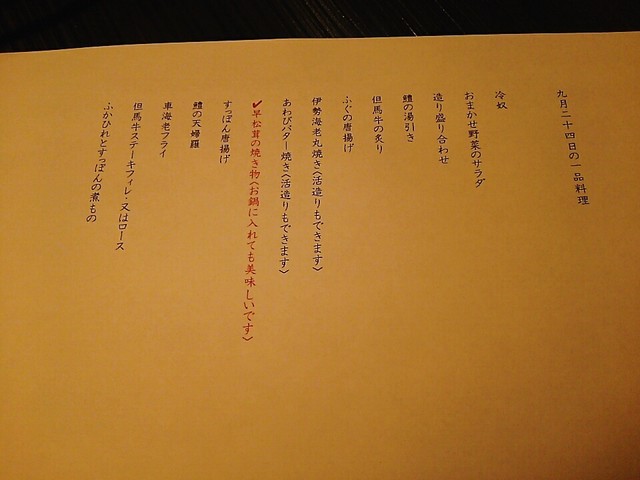 九月二十四日の一品料理
冷奴
おまかせ野菜のサラダ
造り盛り合わせ
鱧の湯引き
但馬牛の炙り
ふぐの唐揚げ
伊勢海老丸焼き〈活造りもできます〉
あわびバター焼き〈活造りもできます〉
✔早松茸の焼き物〈お鍋に入れても美味しいです〉
すっぽん唐揚げ
鱧の天婦羅
車海老フライ
但馬牛ステーキフィレ・又はロース
ふかひれとすっぽんの煮もの